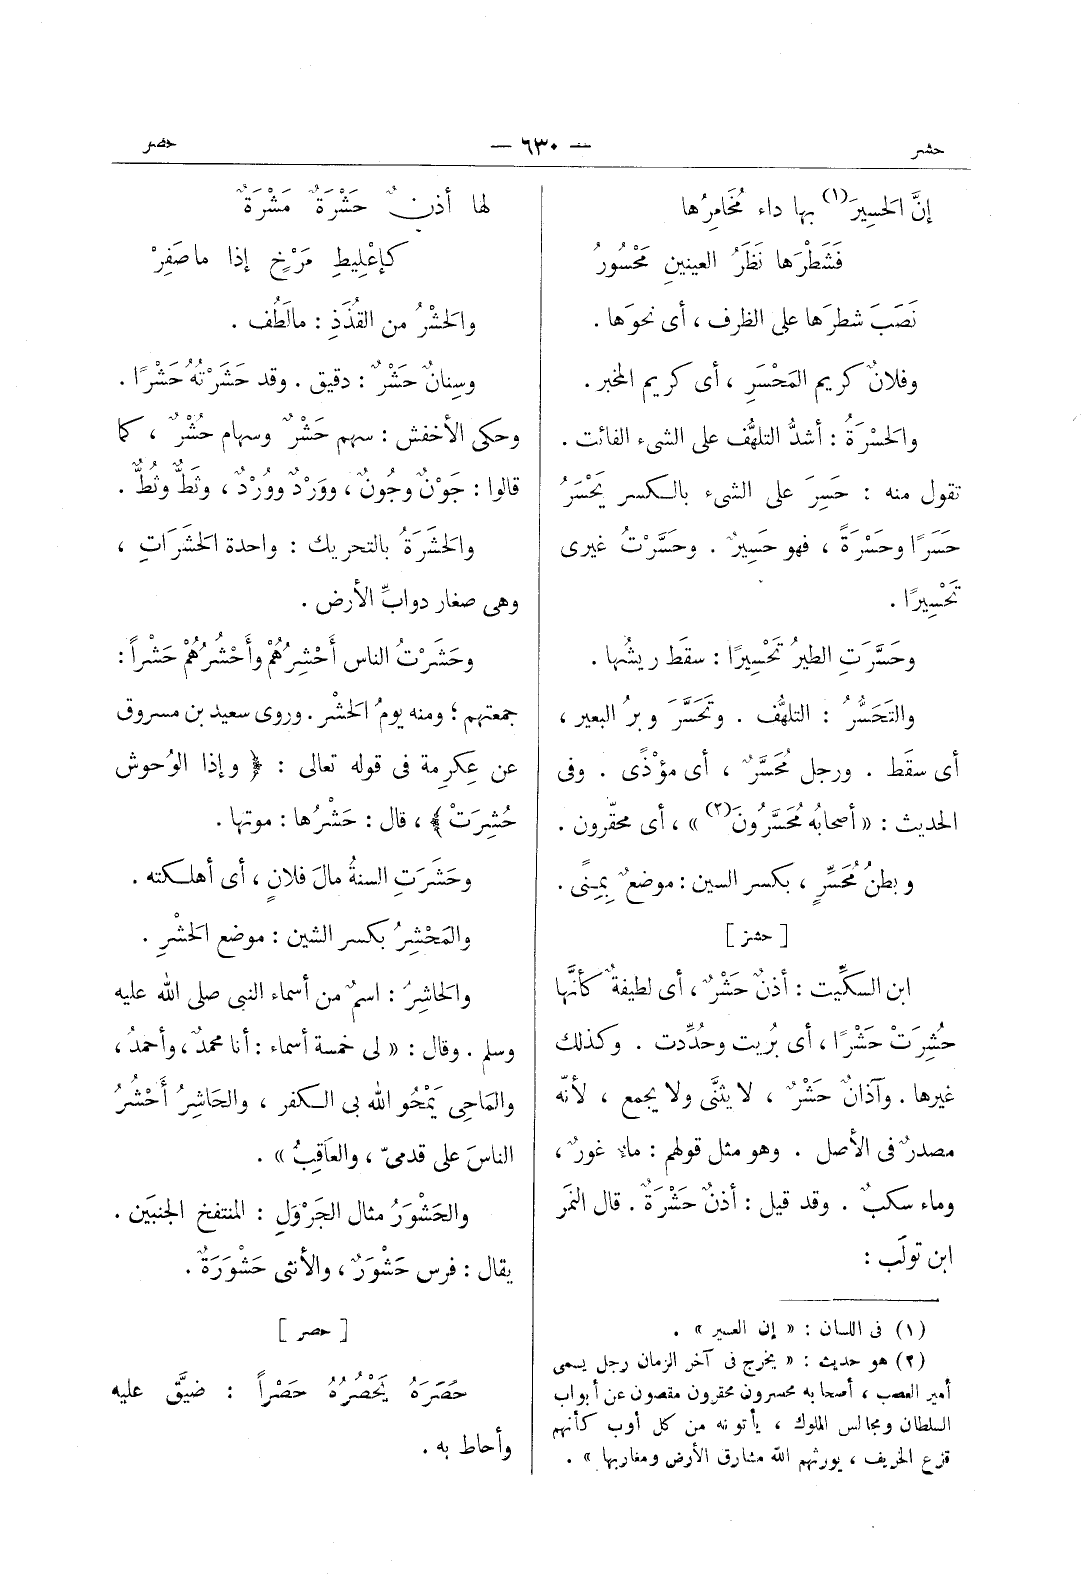 حشر
— ٦٣٠ —
حصر
إنَّ الحَسِيرَ(١) بها داء مُخَامِرُها
فَشَطْرَها نَظَرُ العينينِ مَحْسُورُ
نَصَبَ شطرَها على الظرف ، أى نحوَها .
وفلانٌ كريم المَحْسَرِ ، أى كريم المخبر .
والحَسْرَةُ : أشدُّ التلهُّف على الشىء الفائت .
تقول منه : حَسِرَ على الشىء بالكسر يَحْسَرُ
حَسَرًا وحَسْرَةً ، فهو حَسِيرٌ . وحَسَّرْتُ غيرى
تَحْسِيرًا .
وحَسَّرَتِ الطيرُ تَحْسِيرًا : سقط ريشُها .
والتَحَسُّرُ : التلهُّف . وتَحَسَّرَ وبرُ البعير ،
أى سقط . ورجل مُحَسَّرٌ ، أى مؤْذًى . وفى
الحديث : « أصحابُه مُحَسَّرُونَ(٢) » ، أى محقّرون .
وبطنُ مُحَسِّرٍ ، بكسر السين : موضعٌ بِمِنًى .
[ حشر ]
ابن السكِّيت : أذنٌ حَشْرٌ ، أى لطيفةٌ كأنَّها
حُشِرَتْ حَشْرًا ، أى بُرِيت وحُدِّدت . وكذلك
غيرها . وآذانٌ حَشْرٌ ، لا يثنَّى ولا يجمع ، لأنّه
مصدرٌ فى الأصل . وهو مثل قولهم : ماءٌ غورٌ ،
وماء سكبٌ . وقد قيل : أذنٌ حَشْرَةٌ . قال النمر
ابن تولَب :
(١) فى اللسان : « إن العسير » .
(٢) هو حديث : « يخرج فى آخر الزمان رجل يسمى
أمير العصب ، أصحابه محسرون محقرون مقصون عن أبواب
السلطان ومجالس الملوك ، يأتونه من كل أوب كأنهم
قزع الخريف ، يورثهم الله مشارق الأرض ومغاربها » .
لها أذنٌ حَشْرَةٌ مَشْرَةٌ
كإعْلِيطِ مَرْخٍ إذا ما صَفِرْ
والحَشْرُ من القُذَذِ : مالَطُف .
وسِنانٌ حَشْرٌ : دقيق . وقد حَشَرْتُهُ حَشْرًا .
وحكى الأخفش : سهم حَشْرٌ وسهام حُشْرٌ ، كما
قالوا : جَوْنٌ وجُونٌ ، ووَرْدٌ ووُرْدٌ ، وثَطٌّ وثُطٌّ .
والحَشَرَةُ بالتحريك : واحدة الحَشَرَاتِ ،
وهى صغار دوابِّ الأرض .
وحَشَرْتُ الناس أَحْشِرُهُمْ وأَحْشُرُهُمْ حَشْراً :
جمعتهم ؛ ومنه يومُ الحَشْر . وروى سعيد بن مسروق
عن عِكرِمة فى قوله تعالى : ﴿ وإذا الوُحوش
حُشِرَتْ ﴾ ، قال : حَشْرُها : موتها .
وحَشَرَتِ السنةُ مالَ فلانٍ ، أى أهلكته .
والمَحْشِرُ بكسر الشين : موضع الحَشْرِ .
والحَاشِرُ : اسمٌ من أسماء النبى صلى الله عليه
وسلم . وقال : « لى خمسة أسماء : أنا محمدٌ ، وأحمدُ ،
والمَاحِى يَمْحُو الله بى الكفر ، والحَاشِرُ أَحْشُرُ
الناسَ على قدمىّ ، والعاَقِبُ » .
والحَشْوَرُ مثال الجَرْوَلِ : المنتفخ الجنبَين .
يقال : فرس حَشْوَرٌ ، والأنثى حَشْوَرَةٌ .
[ حصر ]
حَصَرَهُ يَحْصُرُهُ حَصْراً : ضيَّق عليه
وأحاط به .